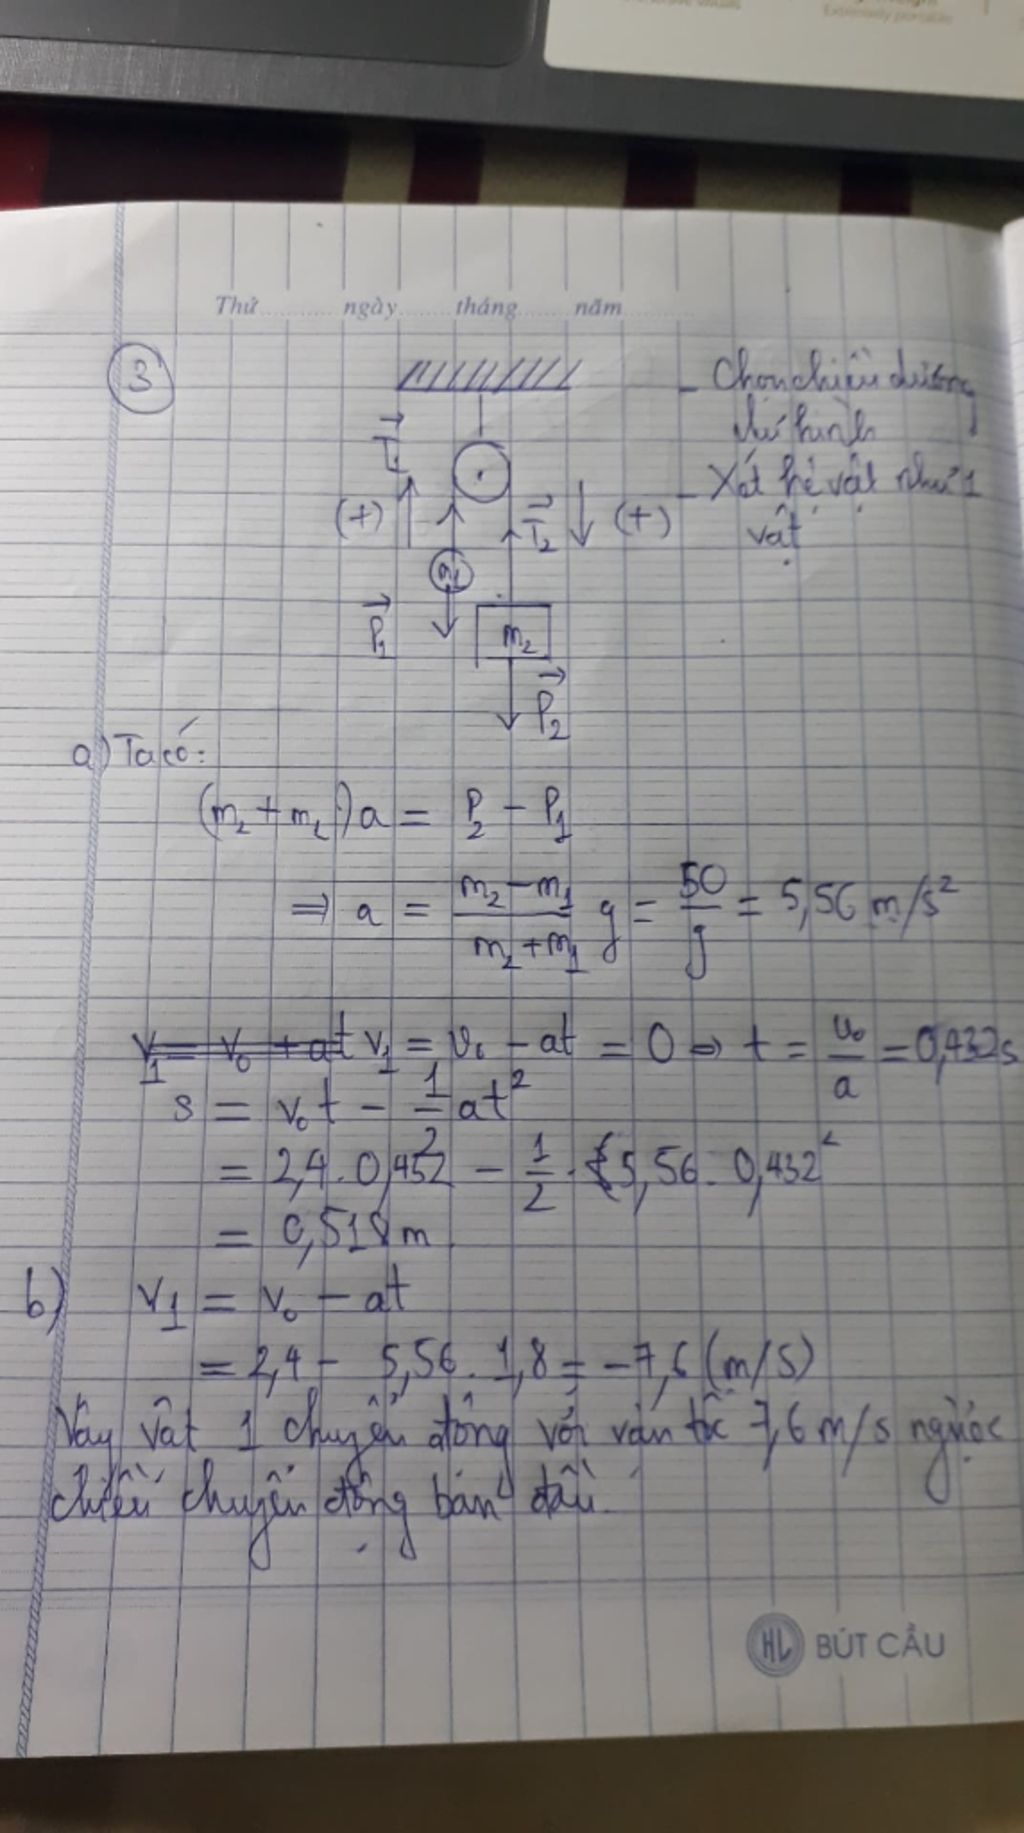 Extremely portable
Thứ ngày tháng năm
3
- Chọn chiều dương
như hình
- Xét hệ vật như 1
vật
T₁
(+) T₂ (+)
m₁
P₁ m₂
P₂
a) Ta có:
(m₂ + m₂) a = P₂ - P₁
⇒ a = (m₂ - m₁)/(m₂ + m₁) g = 50/9 = 5,56 m/s²
v₁ = v₀ + at v₁ = v₀ - at = 0 ⇒ t = v₀/a = 0,432s
s = v₀t - 1/2 at²
= 2,4 . 0,432 - 1/2 . 5,56 . 0,432²
= 0,518 m
b) v₁ = v₀ - at
= 2,4 - 5,56 . 1,8 = -7,6 (m/s)
Vậy vật 1 chuyển động với vận tốc 7,6 m/s ngược
chiều chuyển động ban đầu.
HL BÚT CẦU